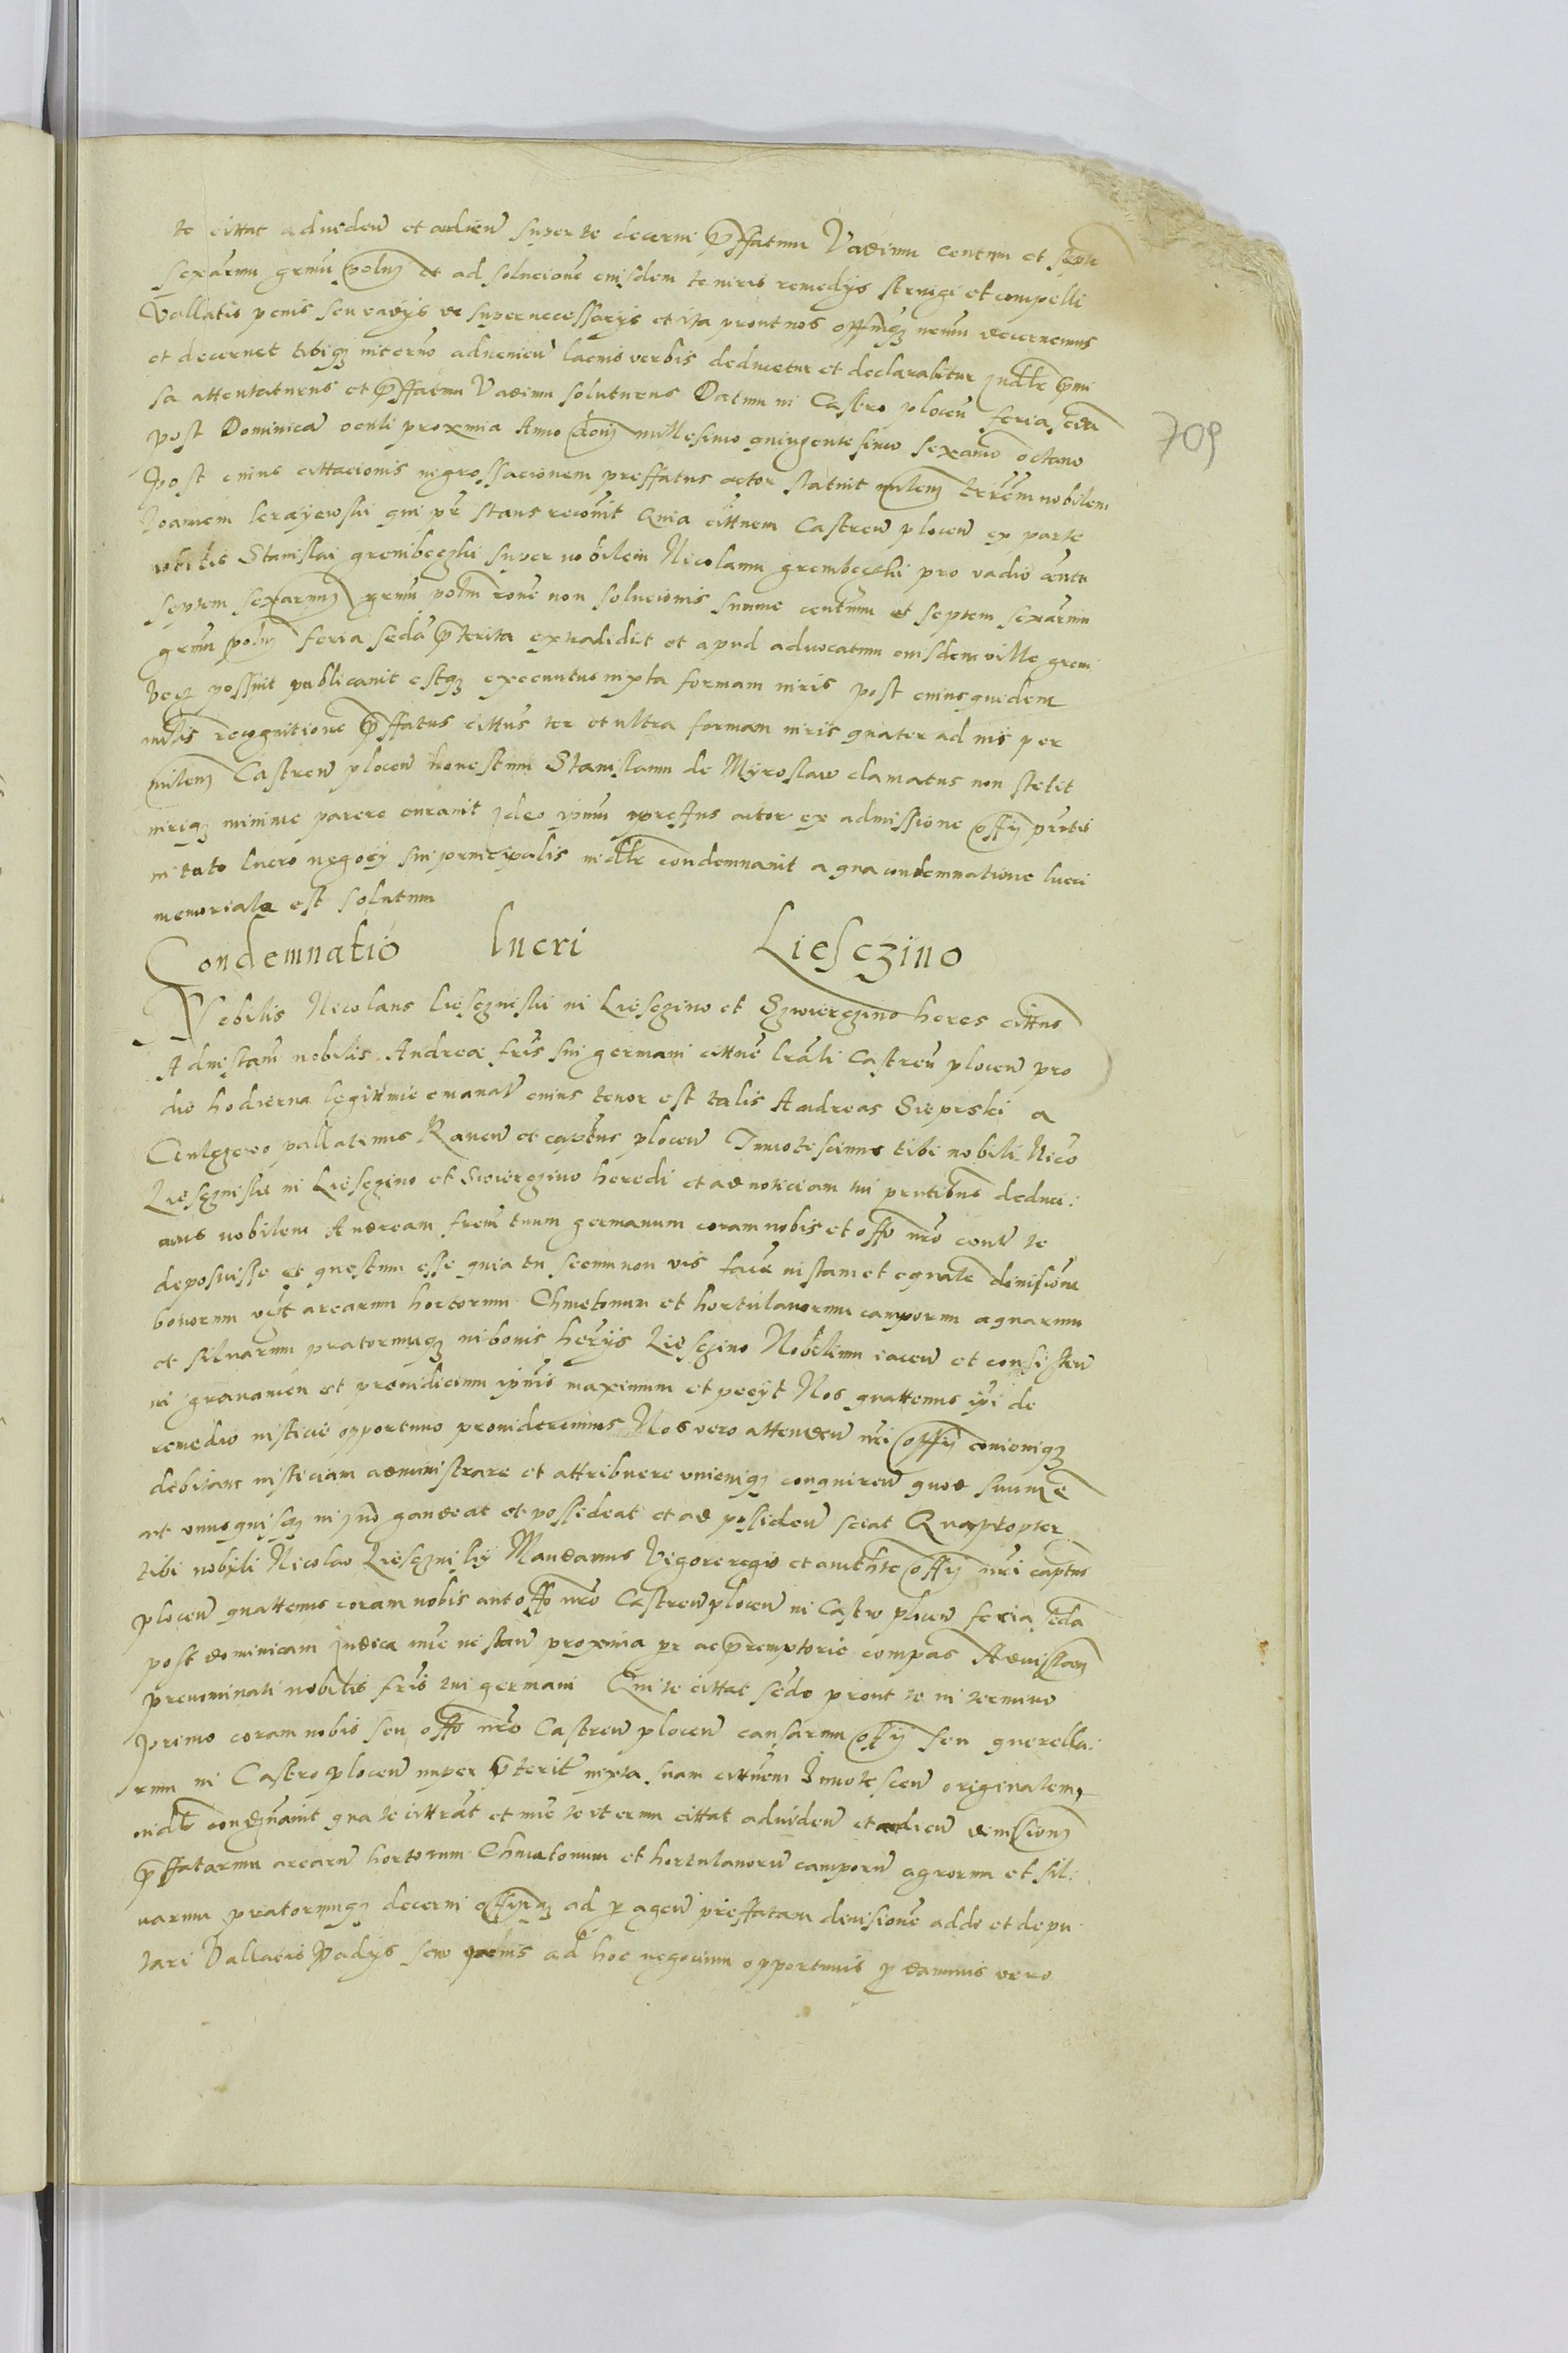 te cittat ad viden et audien super te decerni pffatum Vadium centum et septe
sexarum grmu polnz et ad solucione eiusdem te iuris remedijs stringi et compelli
Vallatis penis seu vadijs de super necessarijs et ita prout nos offmqz nrum decernemus
et decernet tibiqz in termo advenien lacius verbis deducetur et declarabitur Judtr pmi
sa attentaturus et pffatum Vadium soluturus Datum in Castro plocen feria scda
post Dominica oculi proxima Anno dom millesimo quingentesimo sexamo octavo
Post cuius cittacionis ingrossacionem preffatus actor statuit milem terrem nobilem
Joannem qui pr stans recovit Quia cittnem Castren plocen ex parte
nobilis Stanislai grembeczki super nobilem Nicolaum grembeczki pro vadio centu
septem sexarum grmu polm rone non solucionis summe centum et septem sexarum
grmu polnz feria seda pterita extradidit et apud advocatum eiusdem ville grem
becz possuit publicavit estqz executus iuxta formam iuris post cuius quidem
mlis recognitione pffatus cittus ter et ultra formam iuris quater ad nis per
milem Castren plocen honestum Stanislaum de Myroslaw clamatus non stetit
iuriqz minime parere curavit Ideo ipum preffus actor ex admissione offij pntis
in toto lucro negocij sui principalis iudtr condemnavit a qua condemnatione lucri
memoriale est solutum
Condemnatio lucri Liesczino
Nobilis Nicolaus liesczinski in Liesczino et Szwierczino heres cittus
Ad instam nobilis Andreæ fris sui germani cittne lrali Castren plocen pro
die hodierna legittmie emanat cuius tenor est talis Andreas Sieprski a
pallatinus Raven et captus plocen Innotescimus tibi nobili Nico
Liesczinski in Liesczino et Swierczino heredi et ad noticiam tui pntibus deduci:
mus nobilem Andream frem tuum germanum coram nobis et offo nro cont te
deposuisse et questum esse quia tu secum non vis facre iustam et equale divisione
bonorum arearum hortorum Chmetonum et hortulanorum camporum aquarum
et silvarum pratorumqz in bonis herijs Liesczino Nobilium iacen et consisten
in gravamen et preiudicium ipius maximum et pecijt Nos quattenus ipi de
remedio iusticie opportuno providerimus Nos vero attenden nri offij
debitam iusticiam administrare et attribuere unicuiqz conquiren quod suum e
ut unusquisqz in suo gaudeat et possideat et ad possiden sciat Quaproptor
tibi nobili Nicolao Liesczinskij Mandamus Vigore regio et aucthte offij nri captus
plocen quattenus coram nobis aut offo nro Castren plocen in Castro plocen feria seda
post dominicam Judica nuc instan proxima pr ac premptorie compas Ad instam
prenominati nobilis fris tui germani Qui te cittat sedo prout te in termino
primo coram nobis seu offo nro Castren plocen causarum offij seu querella:
rum in Castro plocen nuper pterit iuxta suam cittnem Innotescen originalem
iudtr condemnavit qua te cittrat et nuc te iterum cittat ad viden et audien divisionz
pffatarum arearu hortorum Chmetonum et hortulanoru camporu agrorum et sil:
varum pratorumqz decerni offmqz ad pagen preffatam divisione addi et depu
tari Vallatis Vadijs seu penis ad hoc negocium opportunis vero
709